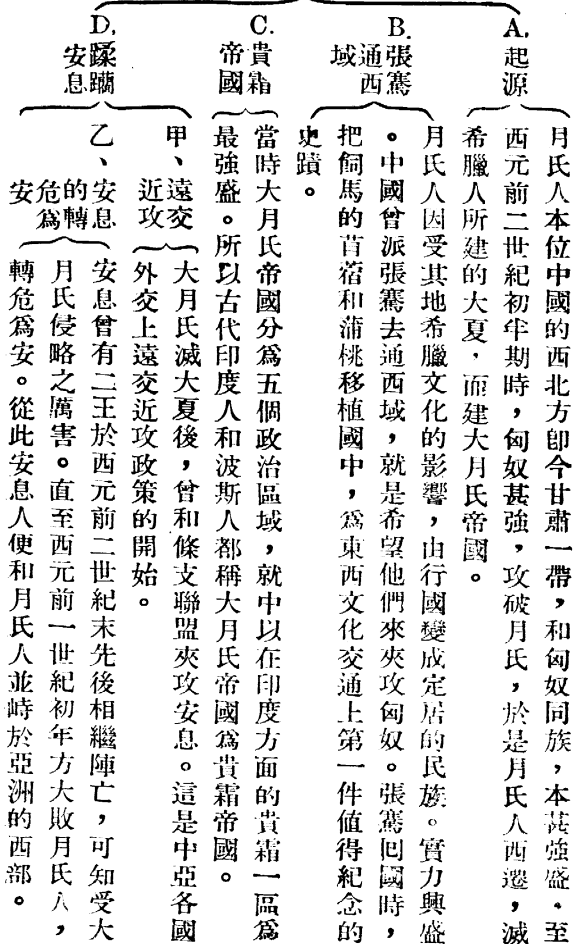 A.
起源
月氏人本位中國的西北方卽今甘肅一帶，和匈奴同族，本甚強盛。至
西元前二世紀初年期時，匈奴甚強，攻破月氏，於是月氏人西遷，滅
希臘人所建的大夏，而建大月氏帝國。
B.
張騫
通西
域
月氏人因受其地希臘文化的影響，由行國變成定居的民族。實力興盛
。中國曾派張騫去通西域，就是希望他們來夾攻匈奴。張騫回國時，
把飼馬的苜蓿和蒲桃移植國中，爲東西文化交通上第一件值得紀念的
史蹟。
C.
貴霜
帝國
當時大月氏帝國分爲五個政治區域，就中以在印度方面的貴霜一區爲
最強盛。所以古代印度人和波斯人都稱大月氏帝國爲貴霜帝國。
D.
蹂躪
安息
甲、遠交
近攻
大月氏滅大夏後，曾和條支聯盟夾攻安息。這是中亞各國
外交上遠交近攻政策的開始。
乙、安息
的轉
危爲
安
安息曾有二王於西元前二世紀末先後相繼陣亡，可知受大
月氏侵略之厲害。直至西元前一世紀初年方大敗月氏人，
轉危爲安。從此安息人便和月氏人並峙於亞洲的西部。